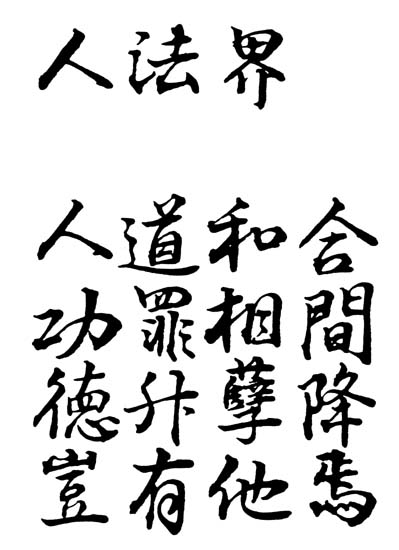 人法界
人道和合
功罪相間
德升孽降
豈有他焉